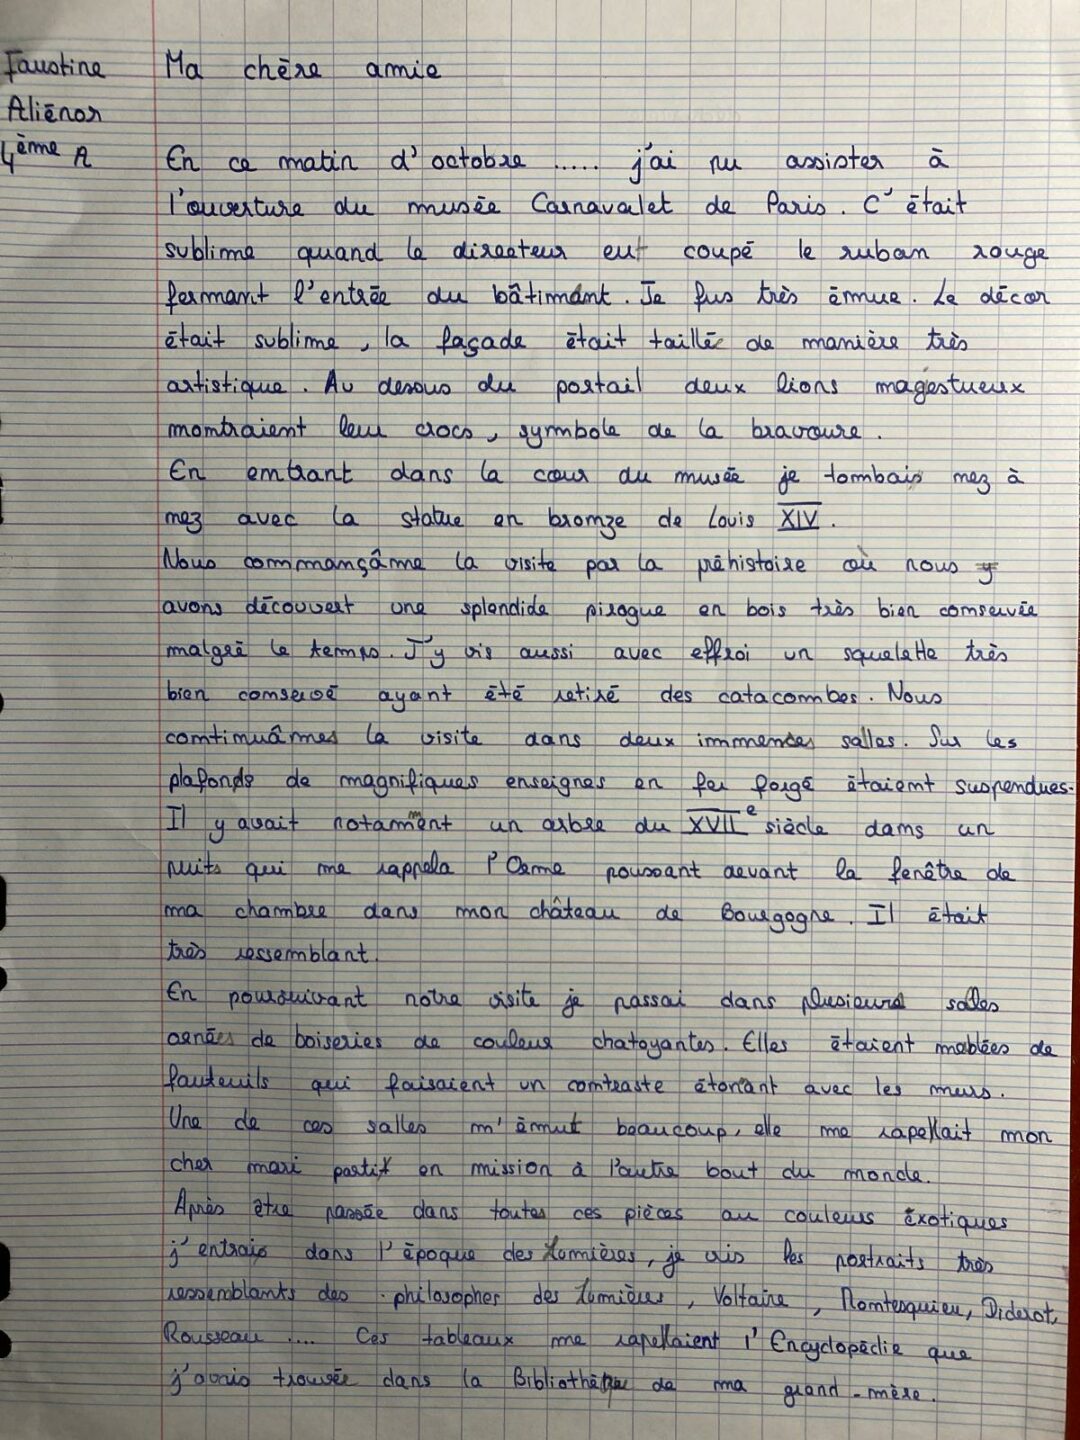 Faustine
Aliénor
4ème A
Ma chère amie
En ce matin d'octobre ..... j'ai pu assister à
l'ouverture du musée Carnavalet de Paris. C'était
sublime quand le directeur eut coupé le ruban rouge
fermant l'entrée du bâtimdnt. Je fus très émue. Le décor
était sublime, la façade était taillée de manière très
artistique. Au desous du portail deux lions magestueux
montraient leur crocs, symbole de la bravoure.
En entrant dans la cour du musée je tombais nez à
nez avec la statue en bronze de Louis XIV.
Nous commançâme la visite par la préhistoire où nous y
avons découvert une splendide pirogue en bois très bien conservée
malgré le temps. J'y vis aussi avec effroi un squelette très
bien conservé ayant été retiré des catacombes. Nous
continuâmes la visite dans deux immenses salles. Sur les
plafonds de magnifiques enseignes en fer forgé étaient suspendues.
Il y avait notamment un arbre du XVIIe siècle dans un
puits qui me rappela l'Orme poussant devant la fenêtre de
ma chambre dans mon château de Bourgogne. Il était
très ressemblant.
En poursuivant notre visite je passai dans plusieurs salles
ornées de boiseries de couleur chatoyantes. Elles étaient meblées de
fauteuils qui faisaient un contraste étonant avec les murs.
Une de ces salles m'émut beaucoup, elle me rapellait mon
cher mari partit en mission à l'autre bout du monde.
Après être passée dans toutes ces pièces au couleurs éxotiques
j'entrais dans l'époque des Lumières, je vis les portraits très
ressemblants des philosophes des Lumières, Voltaire, Montesquieu, Diderot,
Rousseau .... Ces tableaux me rapellaient l'Encyclopédie que
j'avais trouvée dans la Bibliothèque de ma grand-mère.